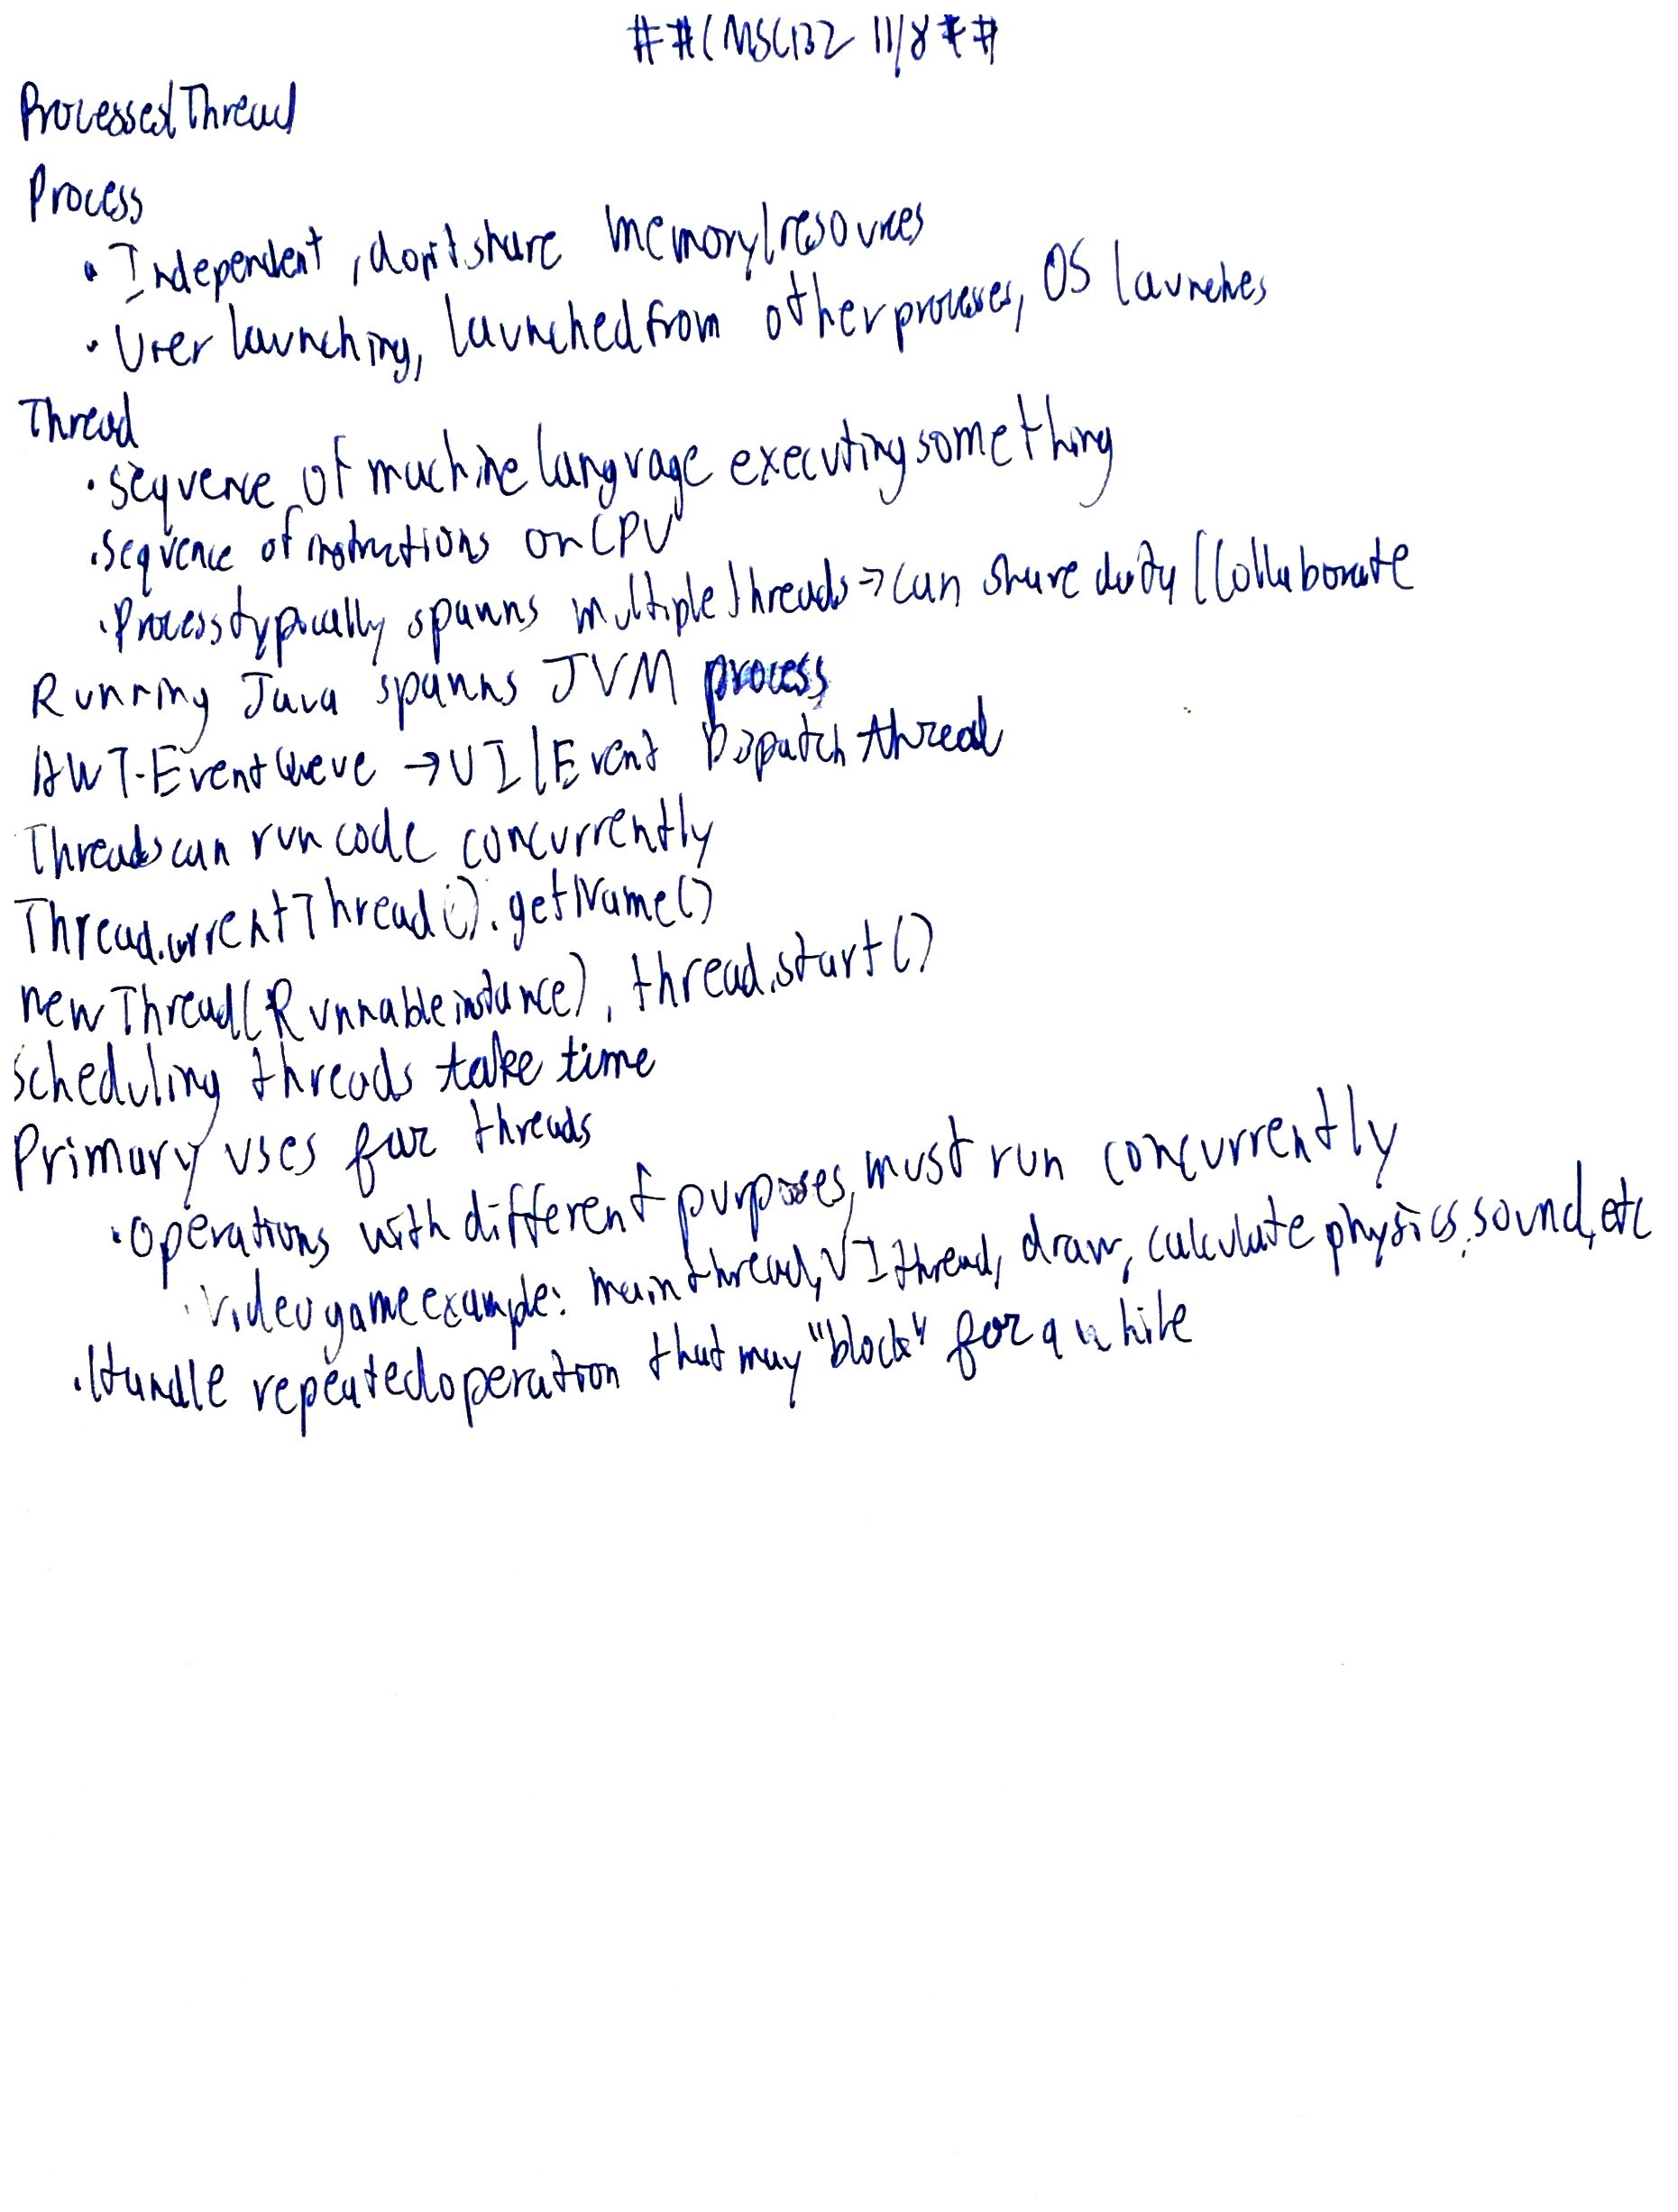 ##CMSC132 11/8##
Processes/Thread
Process
• Independent, don't share memory/resources
• User launching, launched from other processes, OS launches
Thread
• Sequence of machine language executing something
• Sequence of instructions on CPU
• Process typically spawns multiple threads → can share data/Collaborate
Running Java spawns JVM process
AWT-EventQueue → UI/Event Dispatch thread
Threads can run code concurrently
Thread.currentThread().getName()
new Thread(Runnable instance), thread.start()
Scheduling threads take time
Primary uses for threads
• Operations with different purposes, must run concurrently
• Video game example: main thread, UI thread, draw, calculate physics, sound, etc
• Handle repeated operation that may "block" for a while